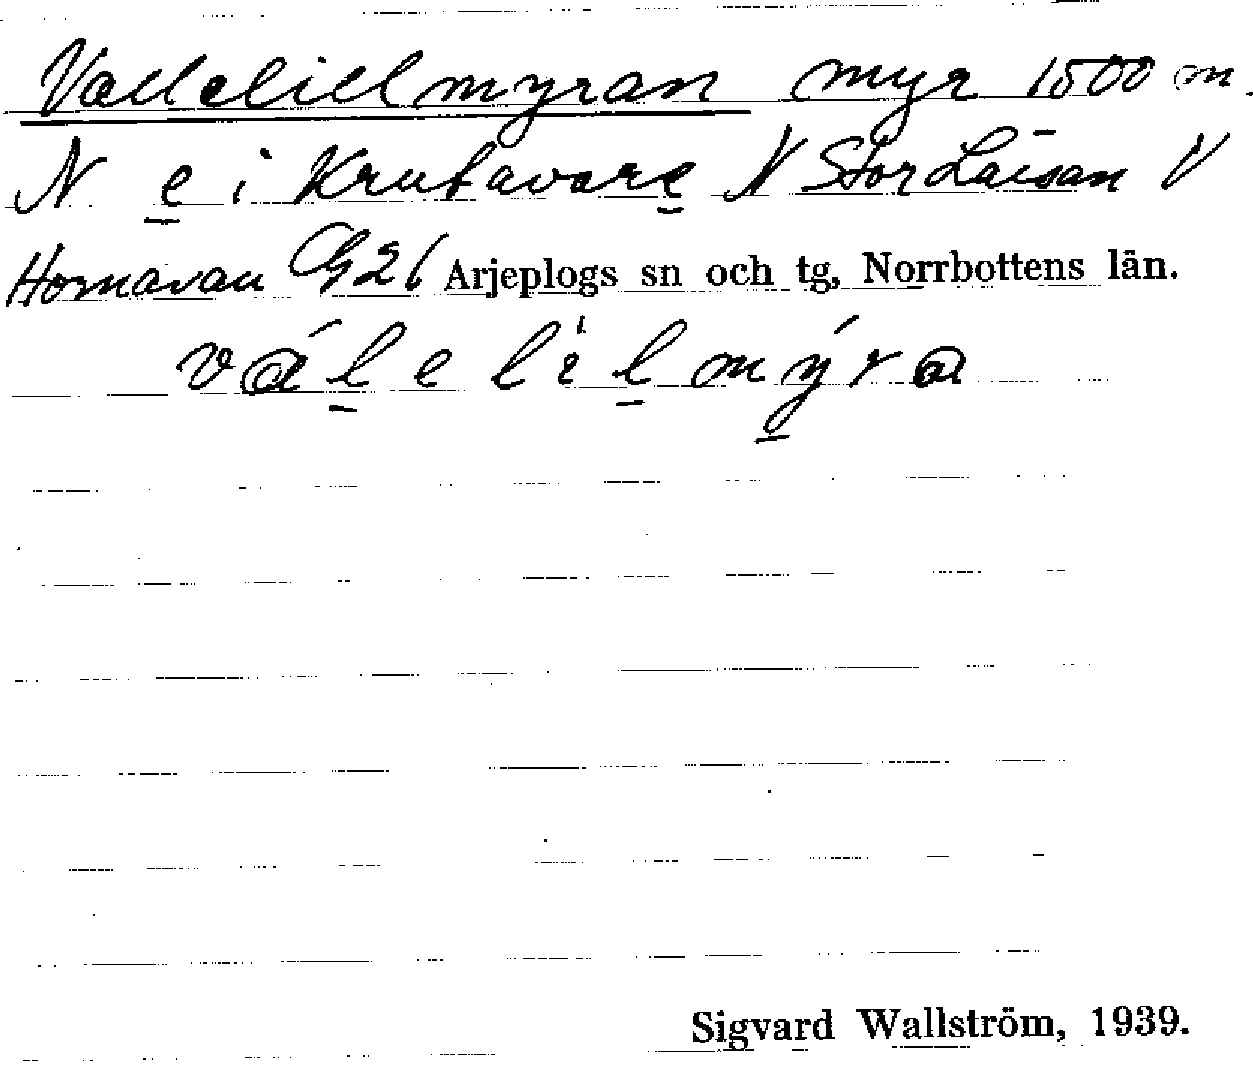 Vallelillmyran myr 1500 m.
N e i Krutavare N Stor Laisan V
Hornavan G26 Arjeplogs sn och tg, Norrbottens län.
válelìlmýra
Sigvard Wallström, 1939.